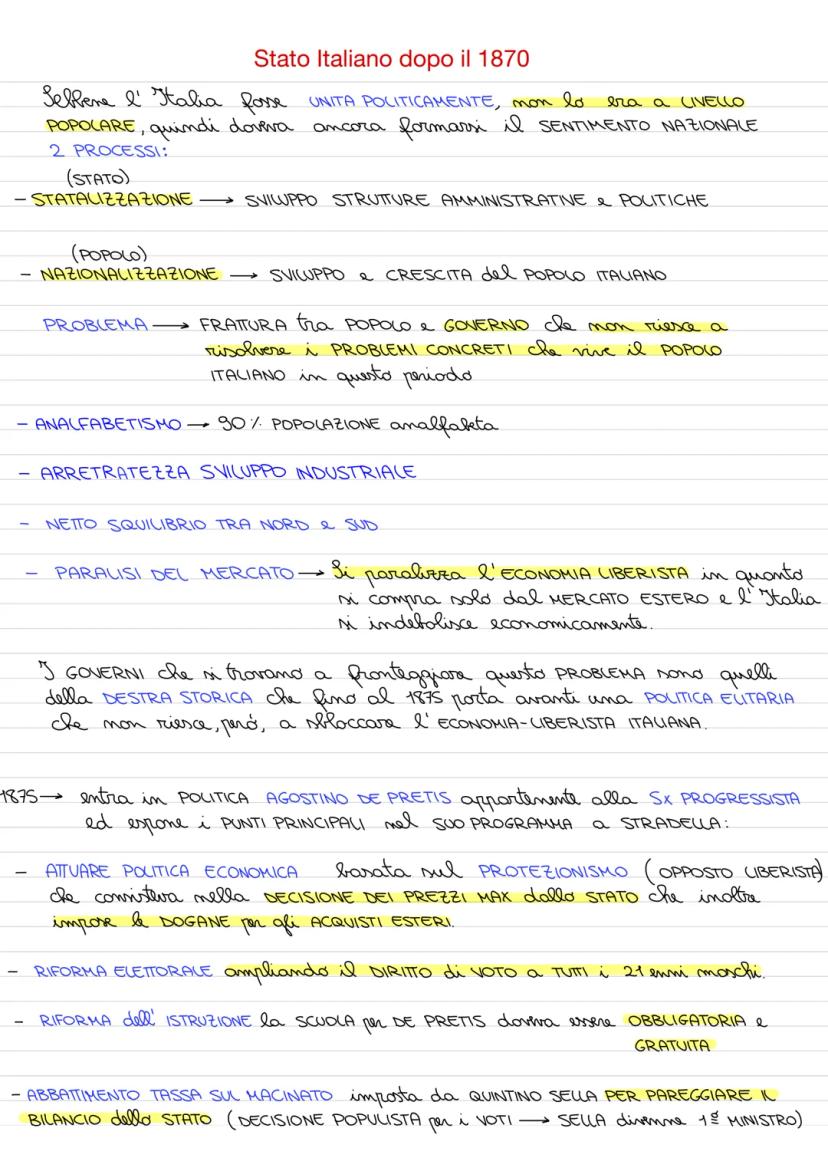 Stato Italiano dopo il 1870
Sebbene l' Italia fosse UNITA POLITICAMENTE, non lo era a LIVELLO
POPOLARE, quindi doveva ancora formarsi il SENTIMENTO NAZIONALE
2 PROCESSI:
(STATO)
- STATALIZZAZIONE → SVILUPPO STRUTTURE AMMINISTRATIVE e POLITICHE
(POPOLO)
- NAZIONALIZZAZIONE → SVILUPPO e CRESCITA del POPOLO ITALIANO
PROBLEMA → FRATTURA tra POPOLO e GOVERNO che non riesce a
risolvere i PROBLEMI CONCRETI che vive il POPOLO
ITALIANO in questo periodo
- ANALFABETISMO → 90% POPOLAZIONE analfabeta
- ARRETRATEZZA SVILUPPO INDUSTRIALE
- NETTO SQUILIBRIO TRA NORD e SUD
- PARALISI DEL MERCATO → Si paralizza l'ECONOMIA LIBERISTA in quanto
si compra solo dal MERCATO ESTERO e l' Italia
si indebolisce economicamente.
I GOVERNI che si trovano a fronteggiare questo PROBLEMA sono quelli
della DESTRA STORICA che fino al 1875 porta avanti una POLITICA ELITARIA
che non riesce, però, a sbloccare l' ECONOMIA-LIBERISTA ITALIANA.
1875 → entra in POLITICA AGOSTINO DE PRETIS appartenente alla Sx PROGRESSISTA
ed espone i PUNTI PRINCIPALI nel SUO PROGRAMMA a STRADELLA:
- ATTUARE POLITICA ECONOMICA basata sul PROTEZIONISMO (OPPOSTO LIBERISTA)
che consisteva nella DECISIONE DEI PREZZI MAX dallo STATO che inoltre
impose le DOGANE per gli ACQUISTI ESTERI.
- RIFORMA ELETTORALE ampliando il DIRITTO di VOTO a TUTTI i 21 enni maschi.
- RIFORMA dell' ISTRUZIONE la SCUOLA per DE PRETIS doveva essere OBBLIGATORIA e
GRATUITA
- ABBATIMENTO TASSA SUL MACINATO imposta da QUINTINO SELLA PER PAREGGIARE IL
BILANCIO dello STATO (DECISIONE POPULISTA per i VOTI → SELLA divenne 1º MINISTRO)